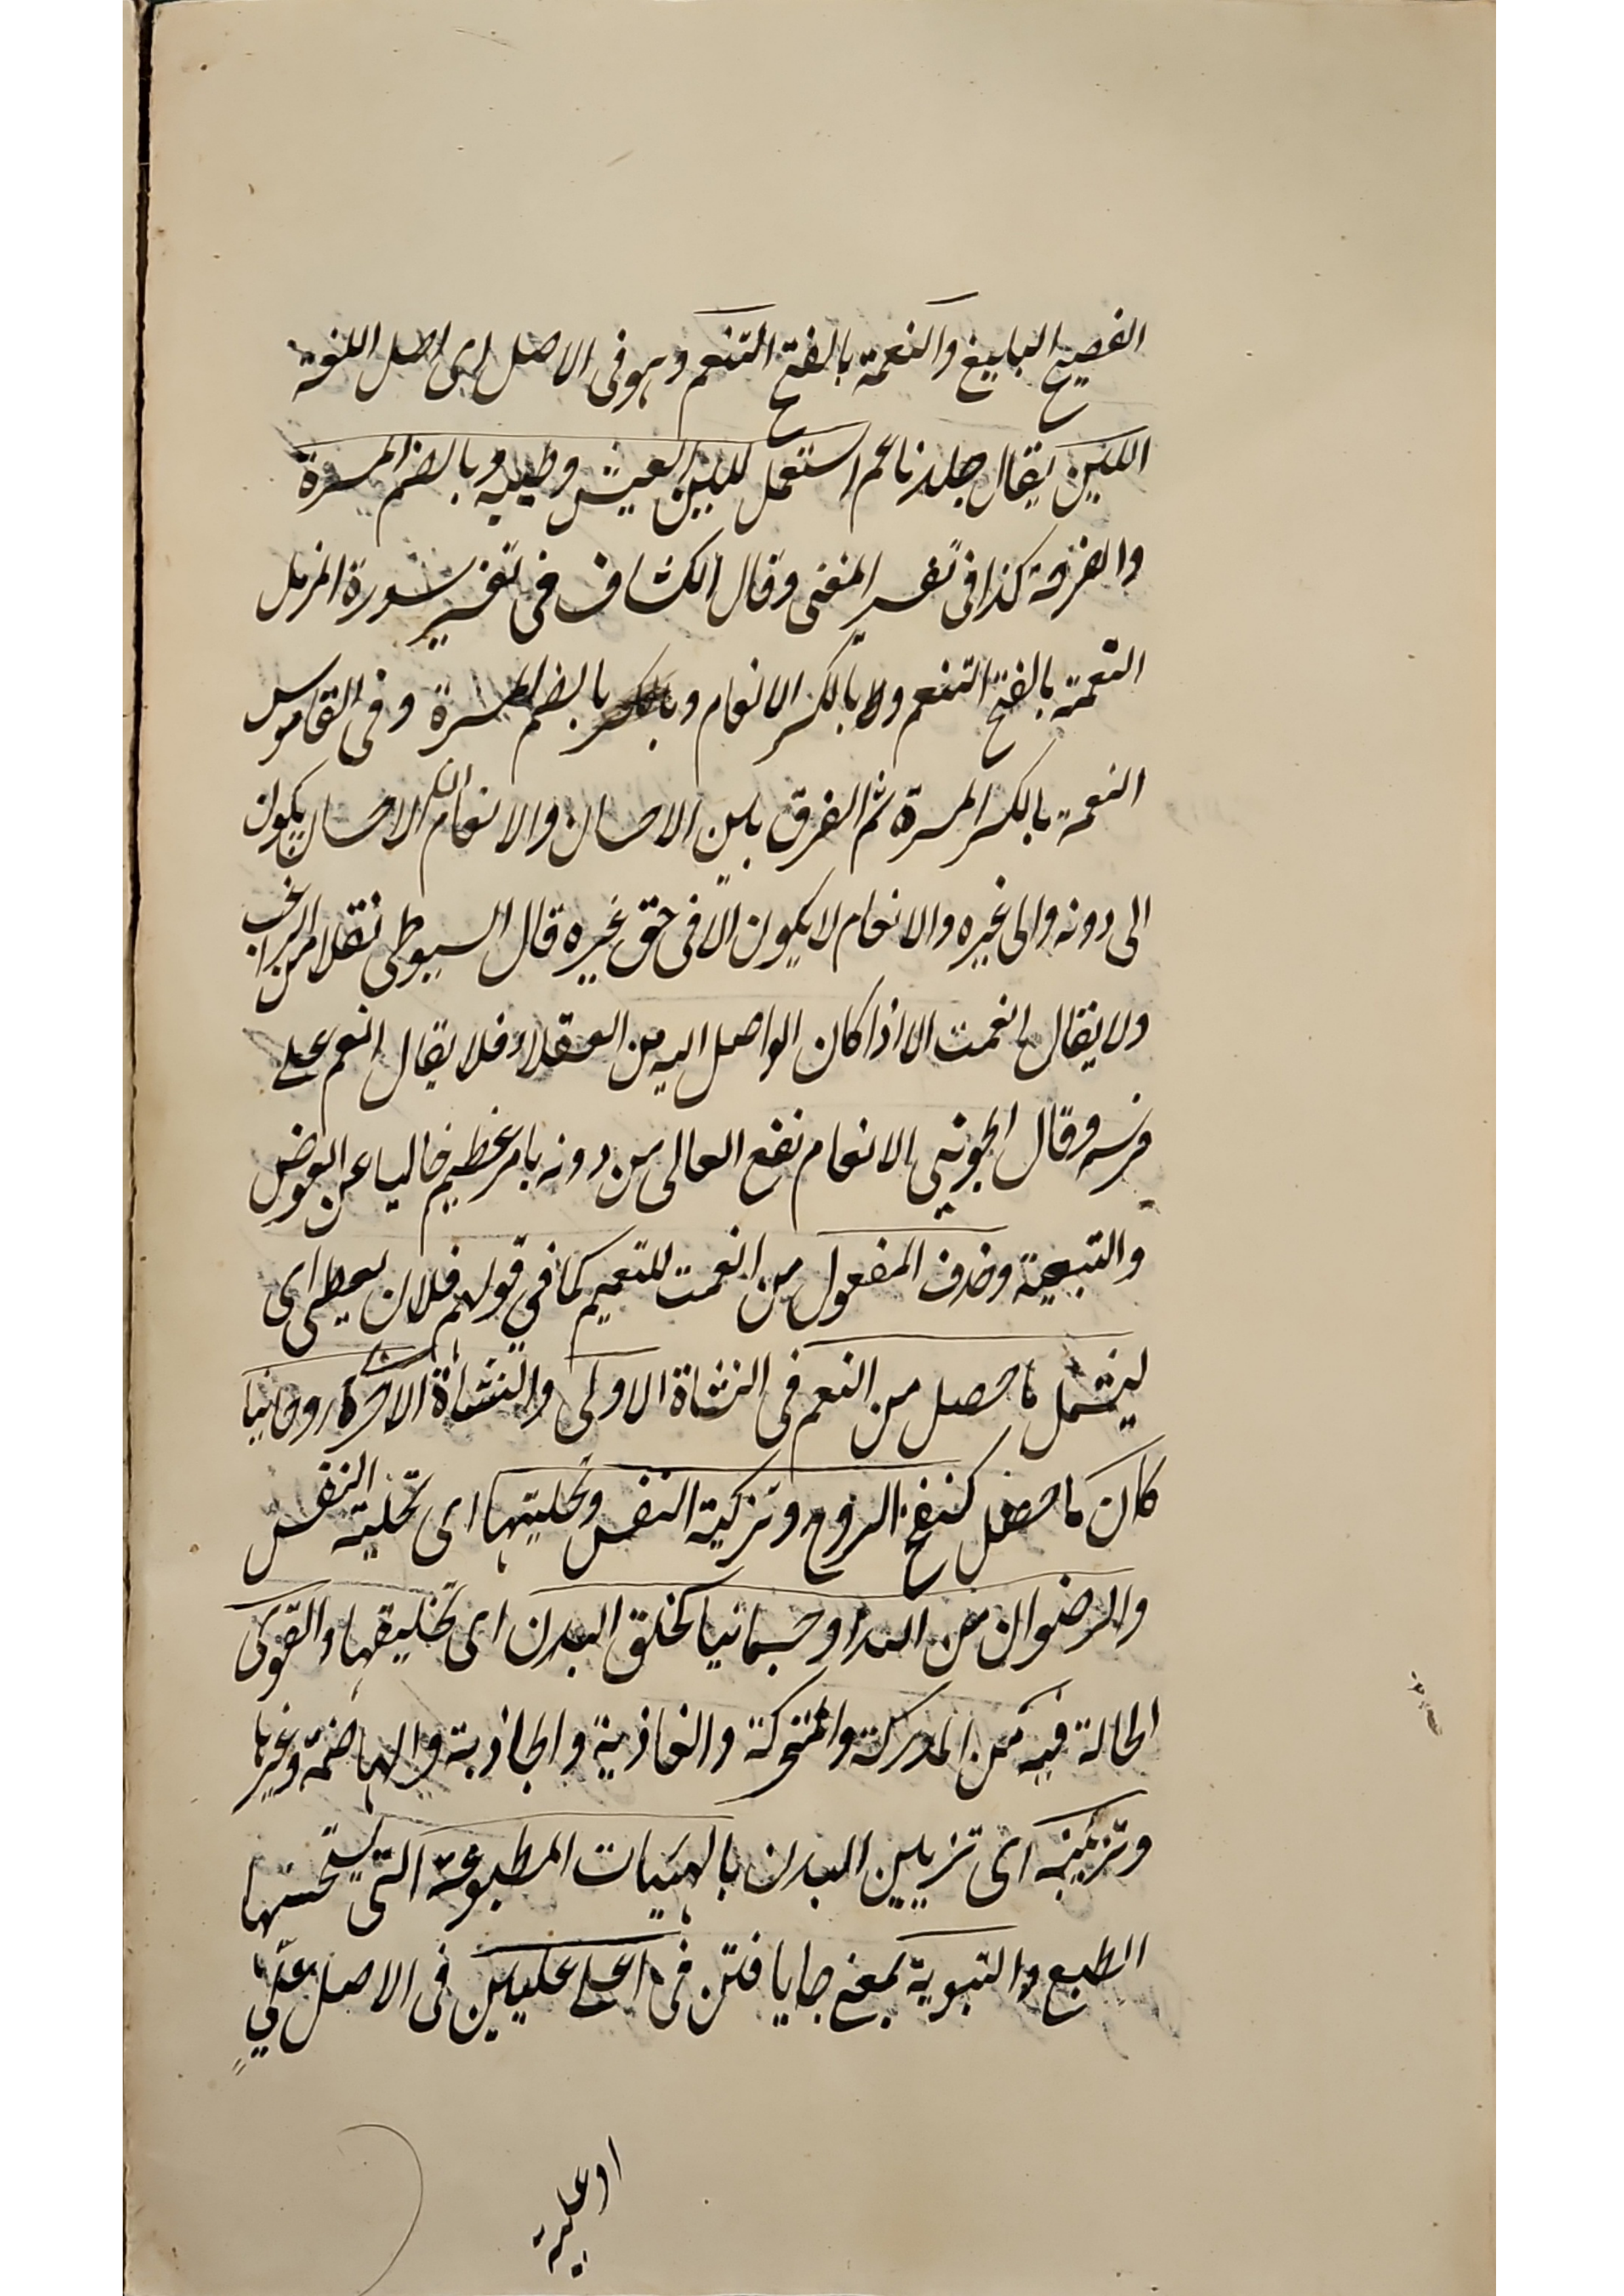 الفصيح البليغ والنعمة بالفتح التنعم وهو فى الاصل اى اصل اللغة
اللين يقال جلد ناعم استعمل للين العيش وطيبه وبالضم المسرة
والفرحة كذا فى تفسير المغنى وقال الكشاف فى تفسير سورة المزمل
النعمة بالفتح التنعم وبالكسر الانعام وبالضم المسرة وفى القاموس
النعمة بالكسر المسرة ثم الفرق بين الاحسان والانعام ان الاحسان يكون
الى دونه والى غيره والانعام لا يكون الا فى حق غيره قال السيوطى نقلا من الراغب
ولا يقال انعمت الا اذا كان الواصل اليه من العقلاء فلا يقال انعم على
فرسه وقال الجوينى الانعام نفع العالى من دونه بامر عظيم خاليا عن العوض
والتبعية وحذف المفعول من انعمت للتعميم كما فى قولهم فلان يعطى اى
ليشمل ما حصل من النعم فى النشاة الاولى والنشاة الاخرة روحانيا
كان ما حصل كنفخ الروح وتزكية النفس وتحليتها اى تحلية النفس
والرضوان من الله او جسمانيا كخلق البدن اى تخليقها والقوى
الحالة فيه من المدركة والمتحركة والغاذية والجاذبة والهاضمة وغيرها
وتزيينه اى تزيين البدن بالهيئات المطبوعة التى يستحسنها
الطبع والتبوية بمعنى جا يافتن فى اعلى عليين فى الاصل علّىّ
او علية